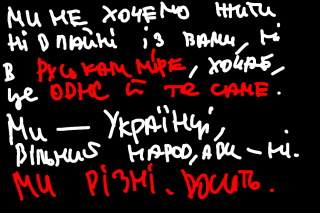 МИ НЕ ХОЧЕМО ЖИТИ
НІ ОПАЙНІ ІЗ ВАМИ, НІ
В РУСЬКАМ МІРЕ, ХОЧАБ,
ЦЕ ОДНЕ Й ТЕ САМЕ.
МИ — УКРАЇНЦІ,
ВІЛЬНИЙ НАРОД, А ВИ – НІ.
МИ РІЗНІ. ДОСИТЬ.